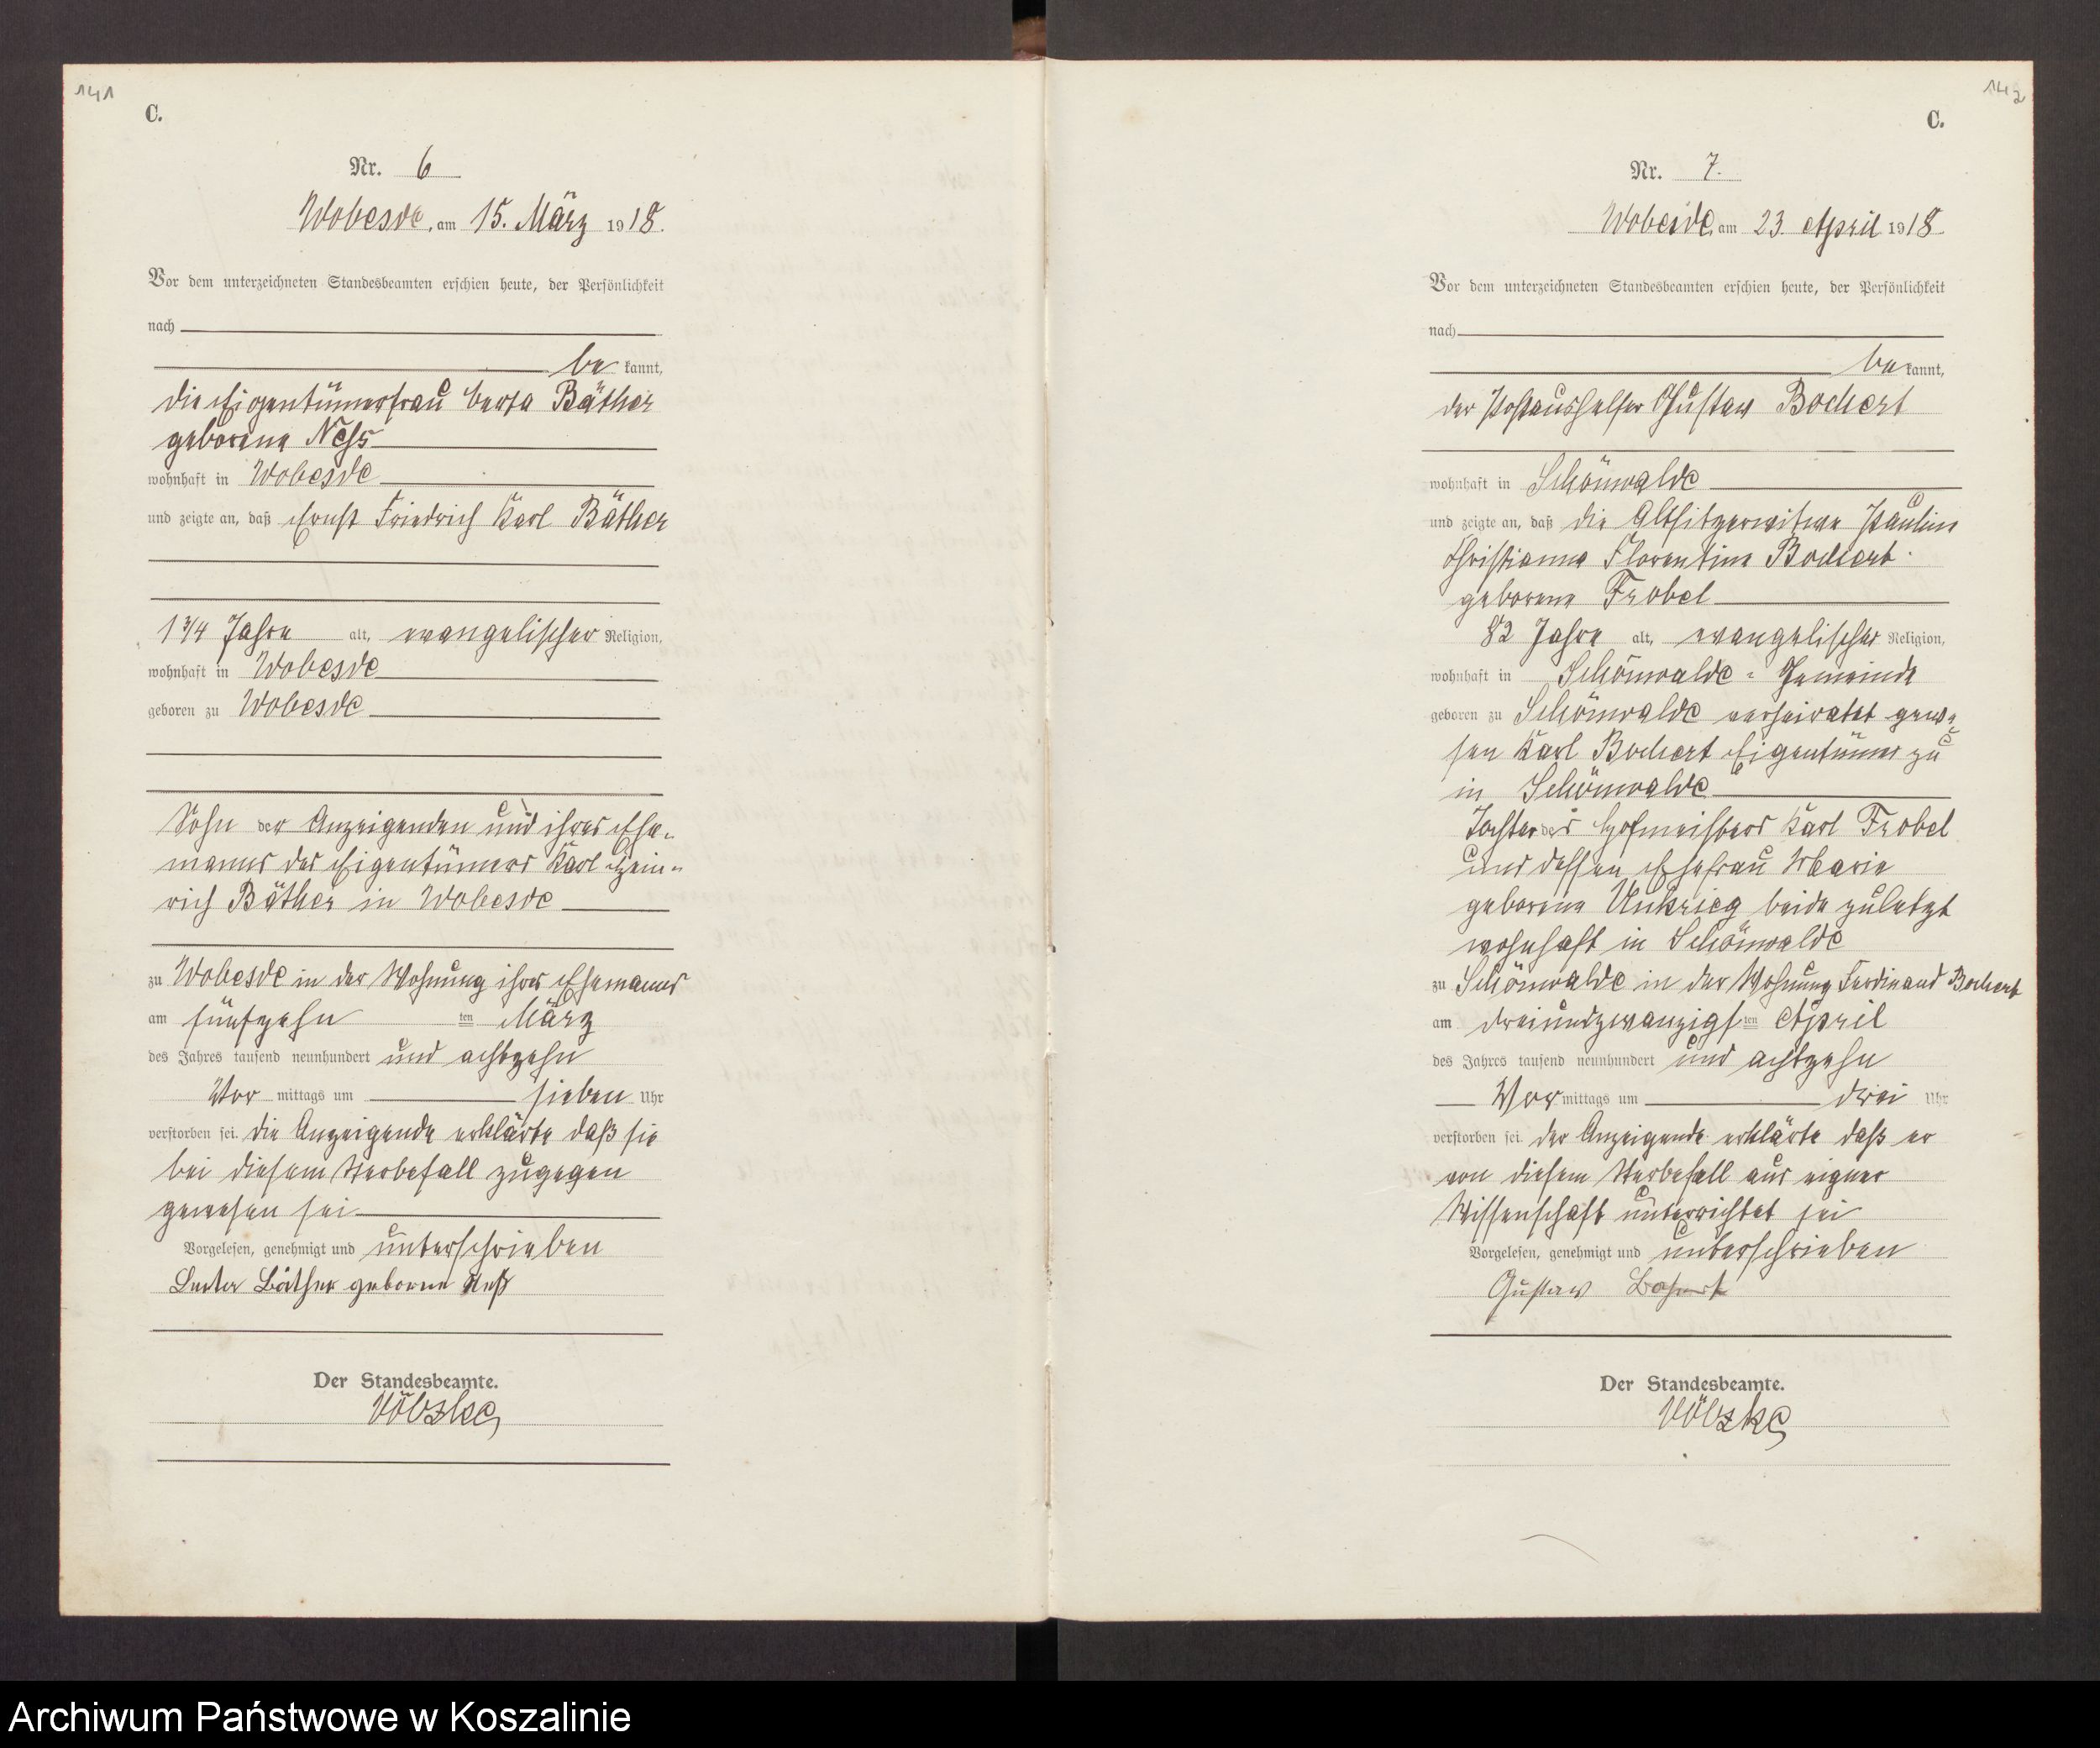 141
C.
Nr. 6
Wobesde, am 15. März 1918.
Vor dem unterzeichneten Standesbeamten erschien heute, der Persönlichkeit
nach
be kannt,
die Eigentümerfrau Berta Bäther
geborene Neß
wohnhaft in Wobesde
und zeigte an, daß Ernst Friedrich Karl Bäther
1 3/4 Jahre alt, evangelischer Religion,
wohnhaft in Wobesde
geboren zu Wobesde
Sohn der Anzeigenden und ihres Ehe-
manns des Eigentümers Karl Hein-
rich Bäther in Wobesde
zu Wobesde in der Wohnung ihres Ehemanns
am fünfzehn ten März
des Jahres tausend neunhundert und achtzehn
Vor mittags um sieben Uhr
verstorben sei. die Anzeigende erklärte daß sie
bei diesem Sterbefall zugegen
gewesen sei
Vorgelesen, genehmigt und unterschrieben
Bäther geborene Neß
Der Standesbeamte.
142
C.
Nr. 7.
Wobesde, am 23. April 1918.
Vor dem unterzeichneten Standesbeamten erschien heute, der Persönlichkeit
nach
be kannt,
der Postaushelfer Gustav Bochert
wohnhaft in Schönwalde
und zeigte an, daß die Altsitzerwitwe Pauline
Christianne Florentine Bochert
geborene Frobel
82 Jahre alt, evangelischer Religion,
wohnhaft in Schönwalde - Gemeinde
geboren zu Schönwalde verheiratet gewe-
sen Karl Bochert Eigentümer zu
in Schönwalde
Tochter des Hofmeisters Karl Frobel
und dessen Ehefrau Marie
geborene Unkrieg beide zuletzt
wohnhaft in Schönwalde
zu Schönwalde in der Wohnung Ferdinand Bochert
am dreiundzwanzigs ten April
des Jahres tausend neunhundert und achtzehn
Vor mittags um drei Uhr
verstorben sei. der Anzeigende erklärte daß er
von diesem Sterbefall aus eigner
Wissenschaft unterrichtet sei
Vorgelesen, genehmigt und unterschrieben
Gustav
Der Standesbeamte.
Archiwum Państwowe w Koszalinie